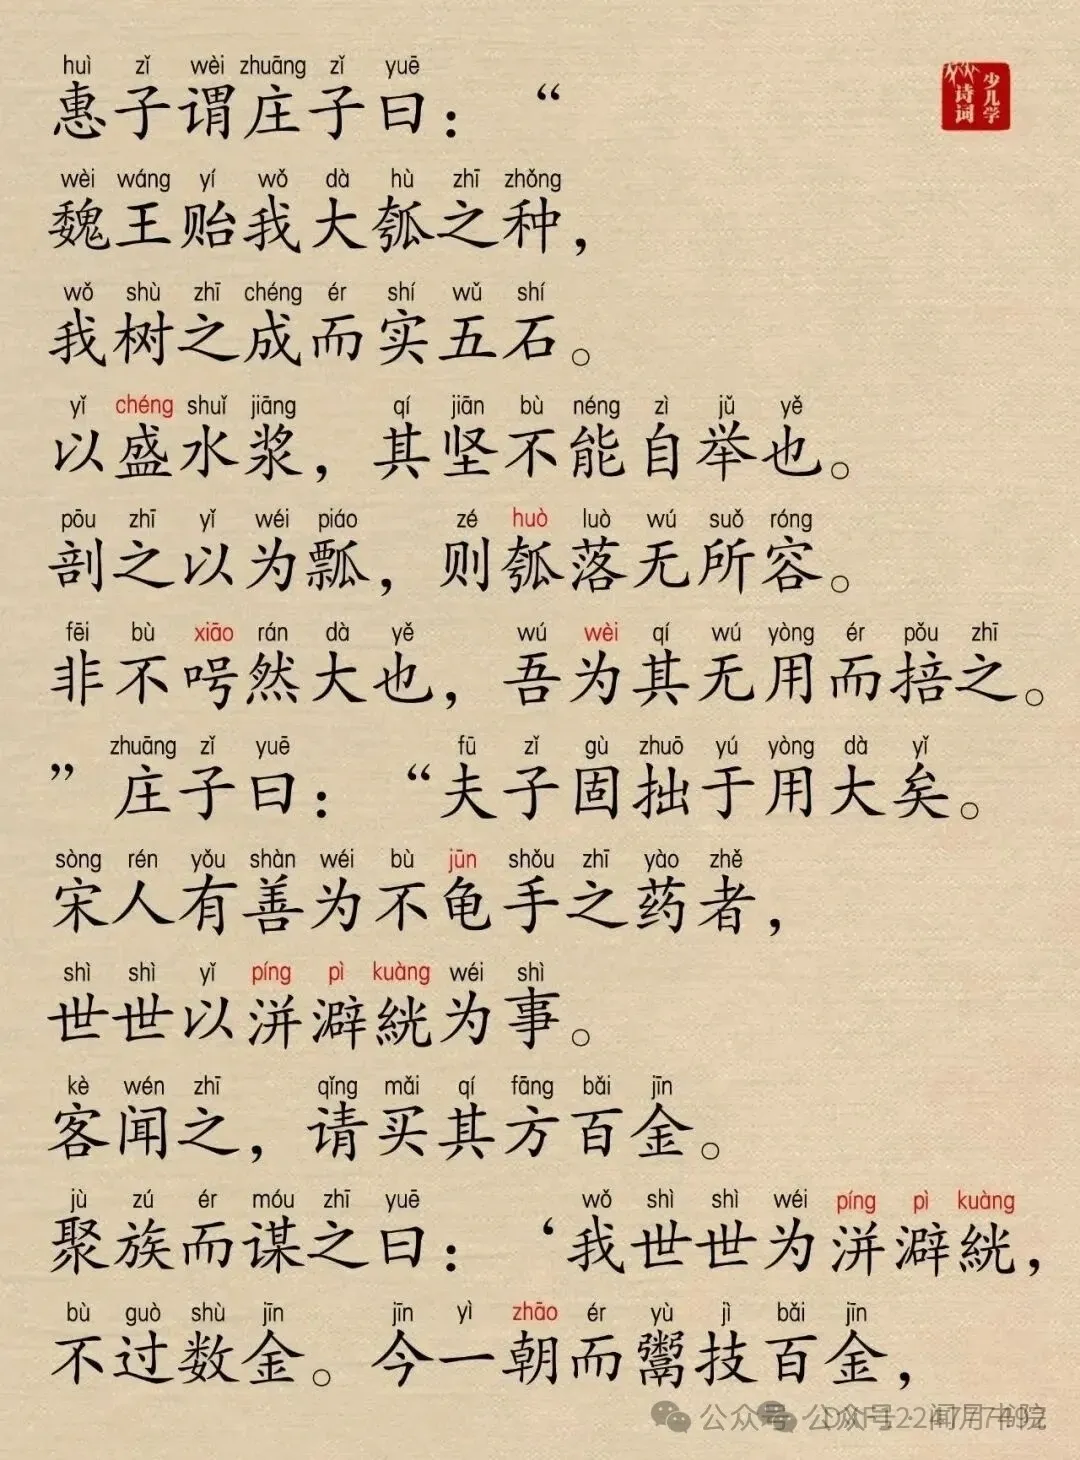 huì zǐ wèi zhuāng zǐ yuē
惠子谓庄子曰：“
少儿学
诗词
wèi wáng yí wǒ dà hù zhī zhǒng
魏王贻我大瓠之种，
wǒ shù zhī chéng ér shí wǔ shí
我树之成而实五石。
yǐ chéng shuǐ jiāng qí jiān bù néng zì jǔ yě
以盛水浆，其坚不能自举也。
pōu zhī yǐ wéi piáo zé huò luò wú suǒ róng
剖之以为瓢，则瓠落无所容。
fēi bù xiāo rán dà yě wú wèi qí wú yòng ér pǒu zhī
非不呺然大也，吾为其无用而掊之。
zhuāng zǐ yuē fū zǐ gù zhuō yú yòng dà yǐ
”庄子曰：“夫子固拙于用大矣。
sòng rén yǒu shàn wéi bù jūn shǒu zhī yào zhě
宋人有善为不龟手之药者，
shì shì yǐ píng pì kuàng wéi shì
世世以洴澼絖为事。
kè wén zhī qǐng mǎi qí fāng bǎi jīn
客闻之，请买其方百金。
jù zú ér móu zhī yuē wǒ shì shì wéi píng pì kuàng
聚族而谋之曰：‘我世世为洴澼絖，
bù guò shù jīn jīn yì zhāo ér yù jì bǎi jīn
不过数金。今一朝而鬻技百金，
公众号 公众号